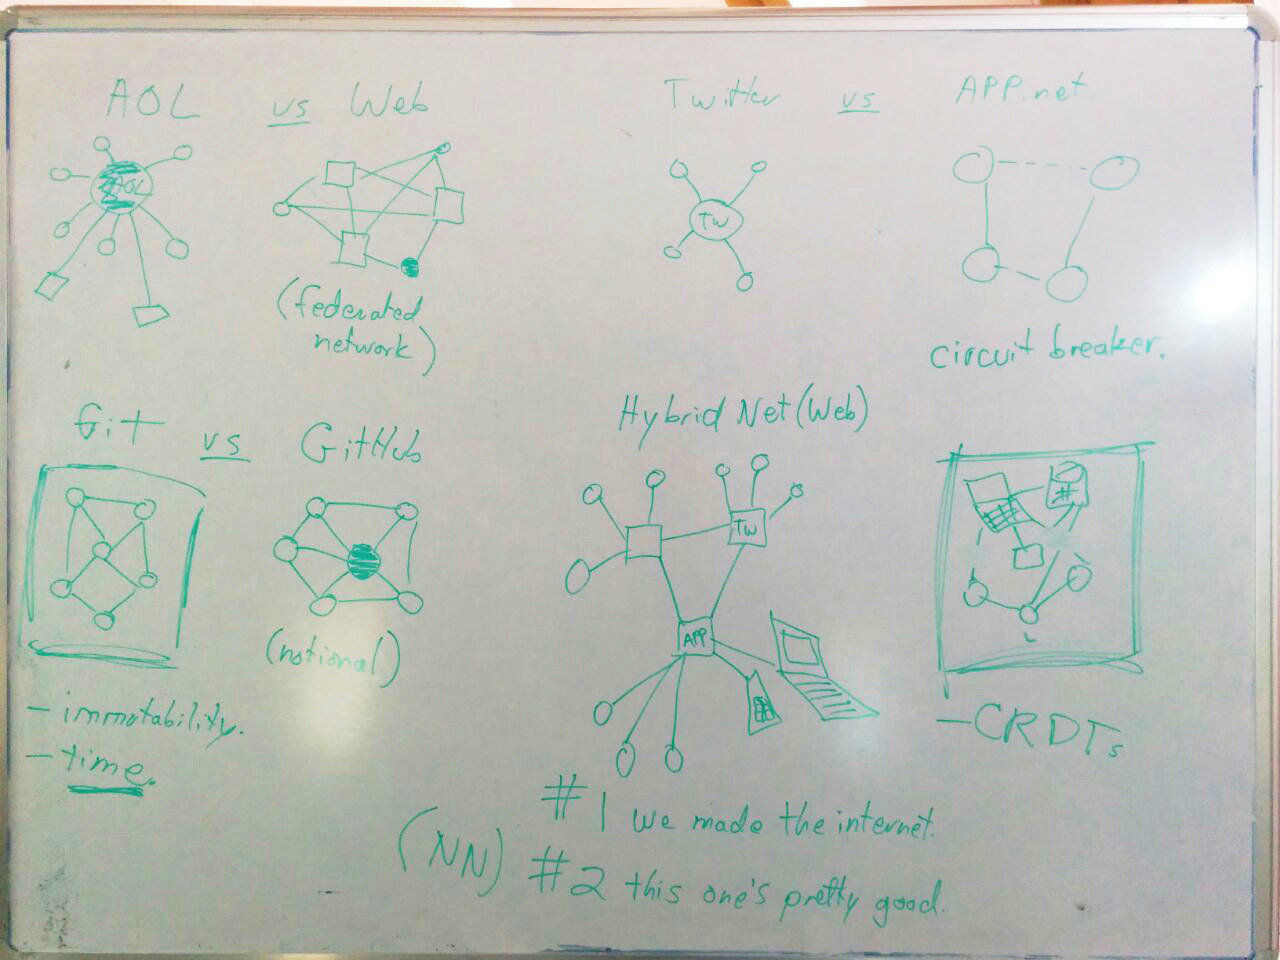 AOL vs Web
AOL
(federated
network)
Twitter vs APP.net
TW
circuit breaker.
Git vs GitHub
(notional)
- immutability.
- time.
Hybrid Net (Web)
TW
APP
#
- CRDTs
#1 we made the internet.
(NN) #2 this one's pretty good.